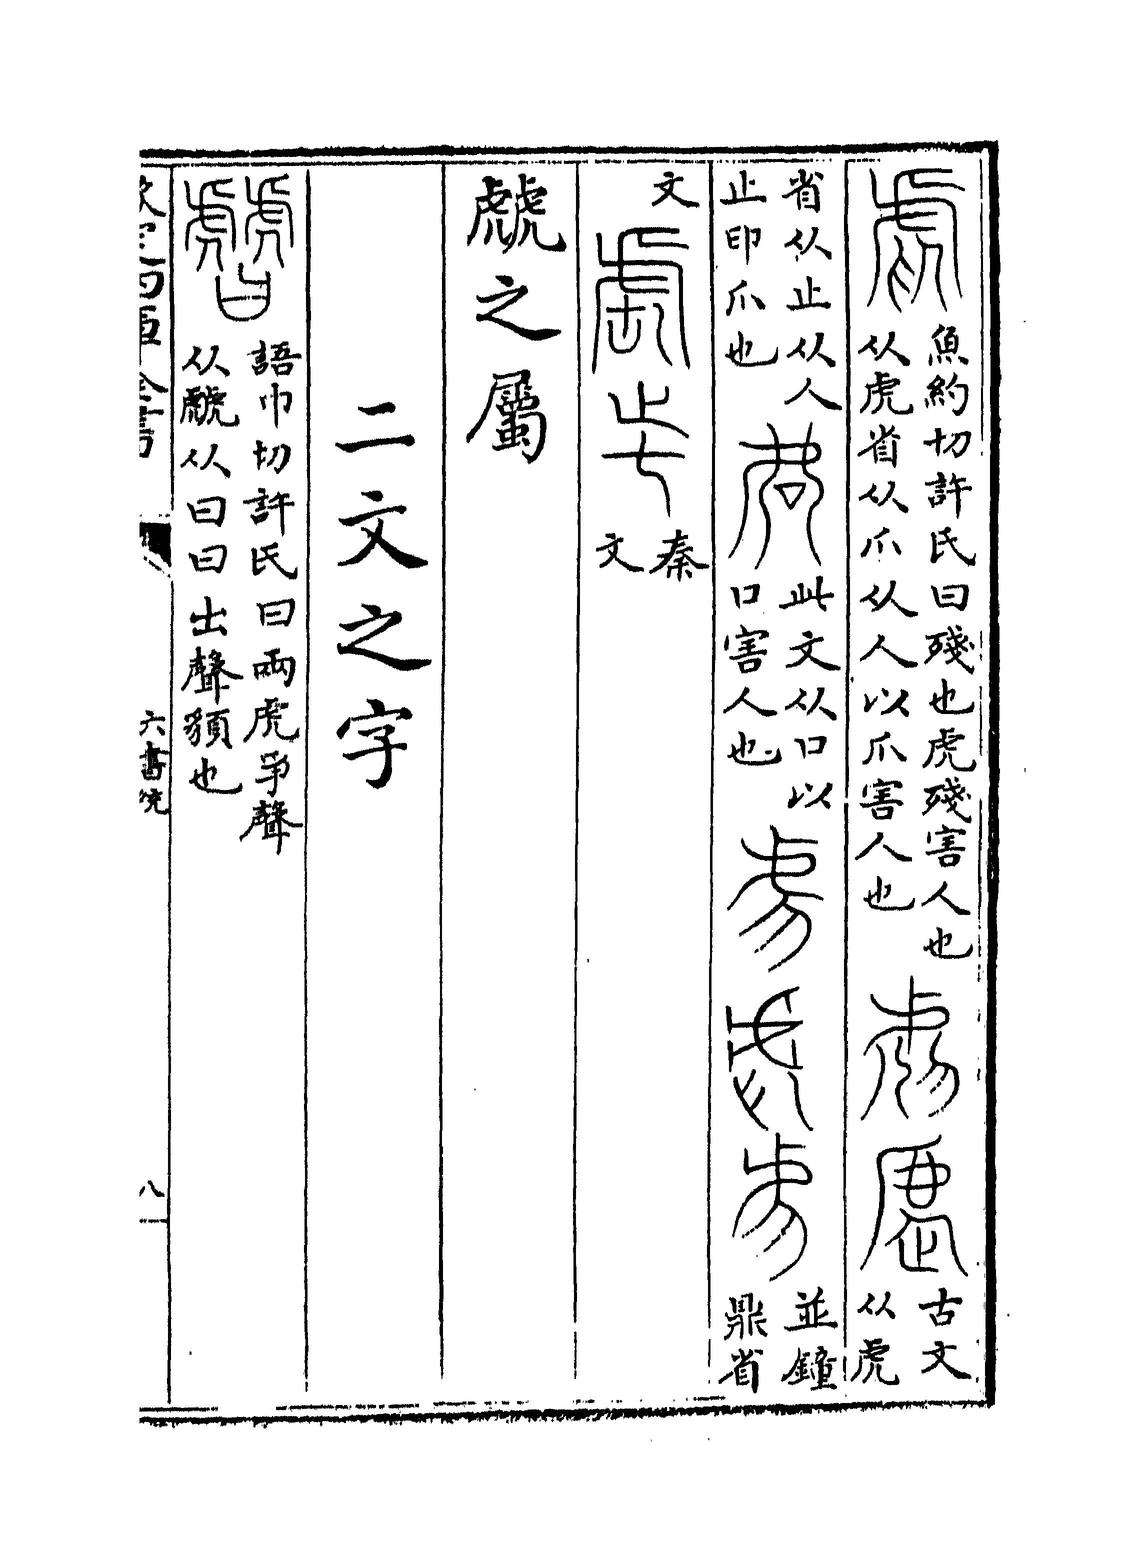 魚約切許氏曰殘也虎殘害人也
从虎省从爪从人以爪害人也
古文
从虎
省从止从人
止印爪也
此文从口以
口害人也
並鐘
鼎省
文
秦
文
虤之屬
二文之字
語巾切許氏曰兩虎爭聲
从虤从曰曰出聲頟也
欽定四庫全書
六書統
八